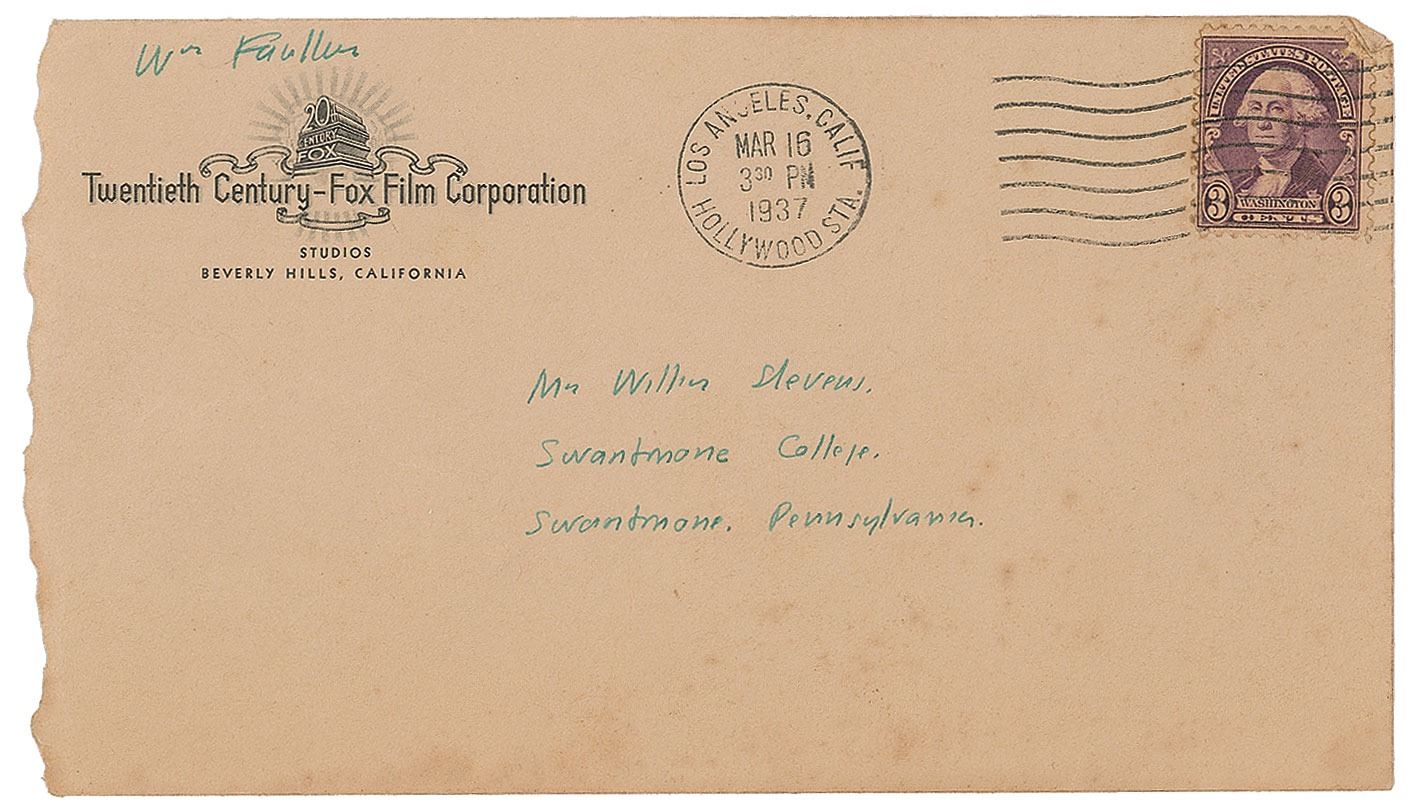 Wm Faulkner
20th
CENTURY
FOX
Twentieth Century-Fox Film Corporation
STUDIOS
BEVERLY HILLS, CALIFORNIA
LOS ANGELES, CALIF
MAR 16
3 30 PM
1937
HOLLYWOOD STA.
UNITED STATES POSTAGE
3 WASHINGTON 3
CENTS
Mr Stevens.
Swarthmore College.
Swarthmore. Pennsylvania.